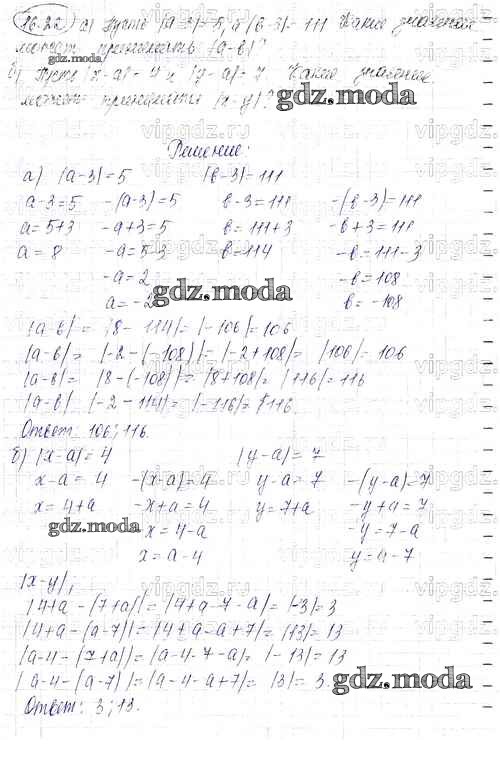 16.22 а) Пусть |а-3|=5, а |в-3|=111 Какие значения
может принимать |а-в|?
б) Пусть |х-а|=4 и |у-а|=7. Какие значение
может принимать |х-у|?
gdz.moda
Решение:
а) |а-3|=5 |в-3|=111
а-3=5 -(а-3)=5 в-3=111 -(в-3)=111
а=5+3 -а+3=5 в=111+3 -в+3=111
а=8 -а=5-3 в=114 -в=111-3
-а=2 -в=108
а=-2 в=-108
gdz.moda
|а-в|= |8-114|=|-106|=106
|а-в|= |-2-(-108)|=|-2+108|= |106|=106
|а-в|= |8-(-108)|=|8+108|= |116|=116
|а-в| |-2-114|= |-116|= 116
Ответ: 106; 116.
б) |х-а|=4 |у-а|=7
х-а=4 -(х-а)=4 у-а=7 -(у-а)=7
х=4+а -х+а=4 у=7+а -у+а=7
gdz.moda
-х=4-а -у=7-а
х=а-4 у=а-7
|х-у|;
|4+а-(7+а)|=|4+а-7-а|=|-3|=3
|4+а-(а-7)|=|4+а-а+7|= |13|=13
|а-4-(7+а)|=|а-4-7-а|= |-13|=13
|а-4-(а-7)|=|а-4-а+7|= |3|=3.
gdz.moda
Ответ: 3; 13.
vipgdz.ru